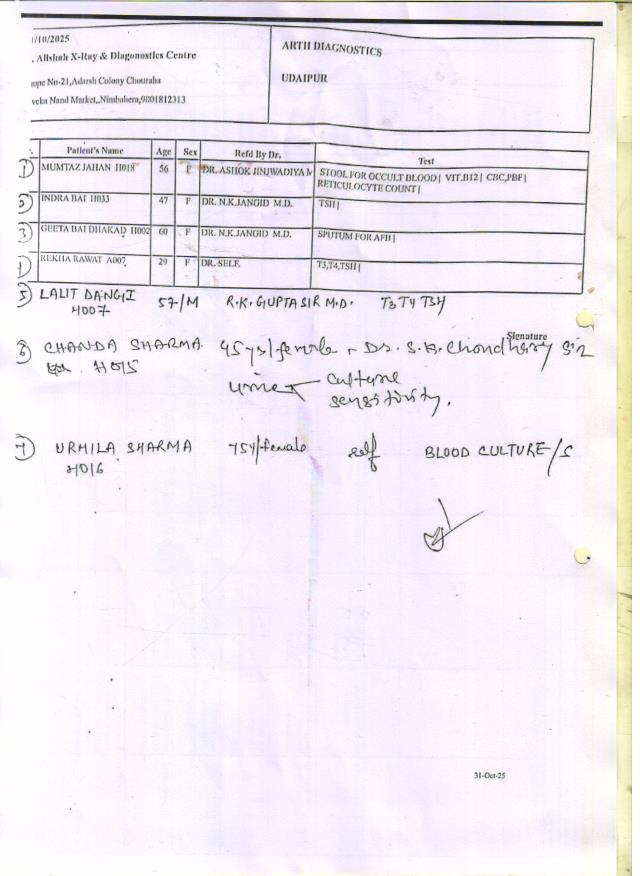 1/10/2025
, Allshah X-Ray & Diagonostics Centre
ope No-21,Adarsh Colony Chouraha
veka Nand Market,,Nimbahera,9001812313
ARTH DIAGNOSTICS
UDAIPUR
Patient's Name Age Sex Refd By Dr. Test
1 MUMTAZ JAHAN H018 56 F DR. ASHOK JINJWADIYA M STOOL FOR OCCULT BLOOD| VIT.B12| CBC,PBF|
RETICULOCYTE COUNT|
2 INDRA BAI H033 47 F DR. N.K.JANGID M.D. TSH|
3 GEETA BAI DHAKAD H002 60 F DR. N.K.JANGID M.D. SPUTUM FOR AFB|
4 REKHA RAWAT A007 29 F DR. SELF. T3,T4,TSH|
5 LALIT DANGI 57/M R.K. GUPTA SIR M.D. T3 T4 TSH
H007
Signature
6 CHANDA SHARMA 45 ys/female Dr. S.B. Chondhary Sir
H015
urine culture
sensitivity.
7 URMILA SHARMA 75y/female self BLOOD CULTURE/S
H016
31-Oct-25